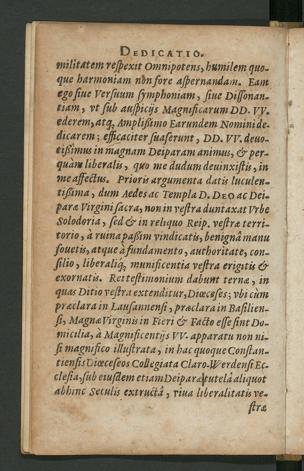 DEDICATIO.
militatem respexit Omnipotens, humilem quo-
que harmoniam non fore aspernandam. Eam
ego siue Versuum symphoniam, siue Dissonan-
tiam, vt sub auspicijs Magnificarum DD. VV.
ederem, atq, Amplißimo Earundem Nomini de-
dicarem; efficaciter suaserunt, DD. VV. deuo-
tißimus in magnam Deiparam animus, & per-
quàm liberalis, quo me dudum deuinxistis, in
me affectus. Prioris argumenta datis luculen-
tißima, dum Aedes ac Templa D. DEO ac Dei-
paræ Virgini sacra, non in vestra duntaxat Vrbe
Solodoria, sed & in reliquo Reip. vestræ territo-
rio, à ruina paßim vindicatis, benignâ manu
fouetis, atque à fundamento, authoritate, con-
silio, liberaliq, munificentia vestra erigitis &
exornatis. Rei testimonium dabunt ternæ, in
quas Ditio vestra extenditur, Diœceses; vbi cùm
præclara in Lausannensi, præclara in Basilien-
si, Magnæ Virginis in Fieri & Facto esse sint Do-
micilia, à Magnificentijs VV. apparatu non ni-
si magnifico illustrata, in hac quoque Constan-
tiensis Diœceseos Collegiata Claro-Werdensi Ec-
clesia, sub eiusdem etiam Deiparæ tutelâ aliquot
abhinc Seculis extructâ, viua liberalitatis ve-
stræ